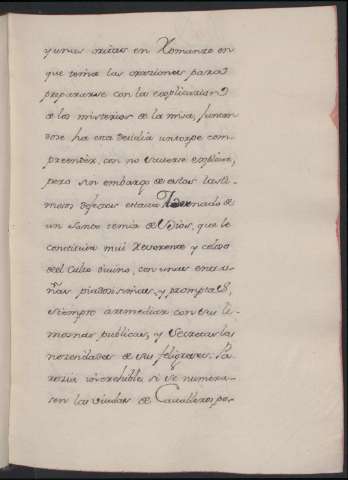 y unas oritas en Romanze en
que tenia las oraciones para
prepararse con la explicacion
de los misterios de la misa, juntan
dose ha esta desidia un torpe com
preender, con no saverse explicar,
pero sin embargo de estos lasti-
mosos defectos estava Adornado de
un santo temor de Dios, que le
constituia mui Reverente y celoso
del Culto divino, con unas entra-
ñas piadosisimas, y promptas,
siempre a remediar con sus li-
mosnas publicas, y secretas las
necesidades de sus feligreses. Pa
rezia increhible, si se numera-
sen las viudas de Cavalleros po-